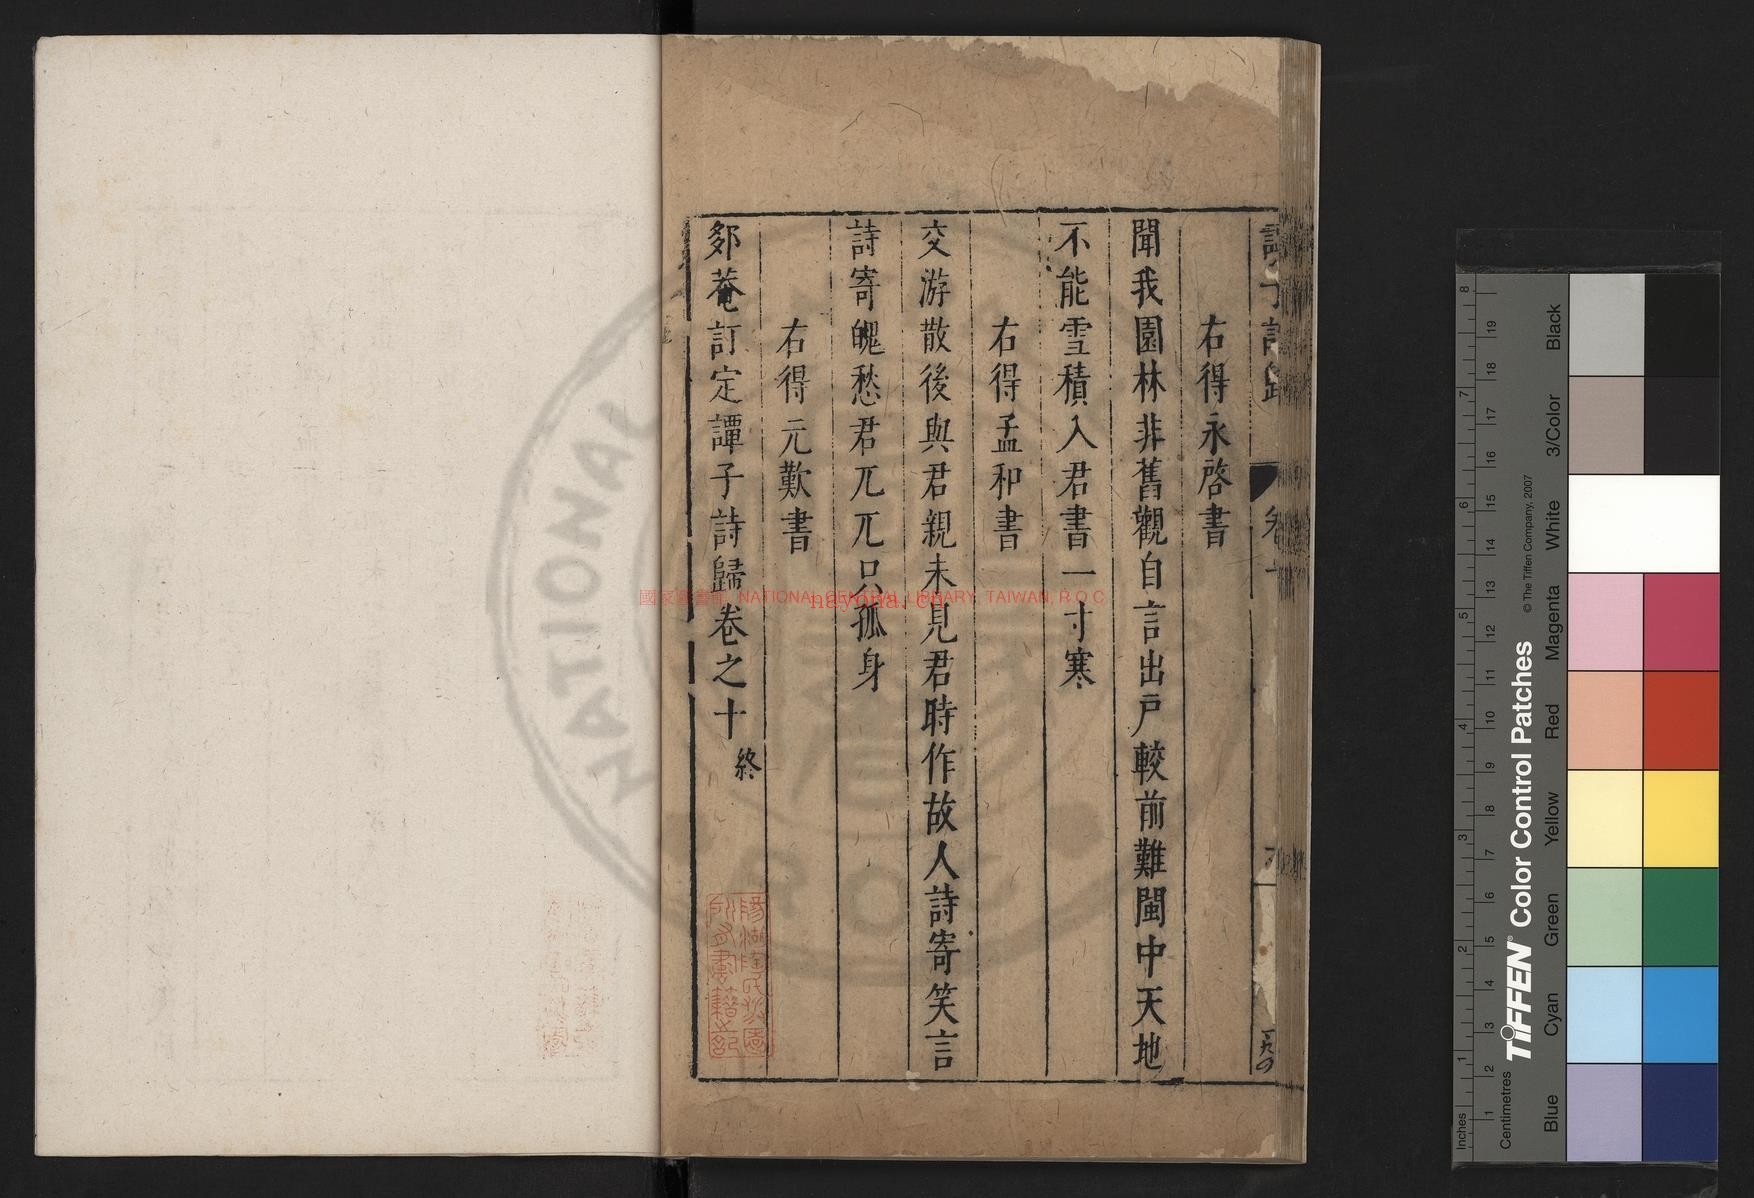 右得永啓書
聞我園林非舊觀自言出戸較前難閩中天地
不能雪積入君書一寸寒
右得孟和書
交游散後與君親未見君時作故人詩寄笑言
詩寄愧愁君兀兀口孤身
右得元歎書
郊菴訂定譚子詩歸卷之十 終
NATIONAL CENTRAL LIBRARY, TAIWAN, R.O.C
NATIONAL
ROC
Inches
1 2 3 4 5 6 7 8
Centimetres
1 2 3 4 5 6 7 8 9 10 11 12 13 14 15 16 17 18 19
TIFFEN® Color Control Patches
© The Tiffen Company, 2007
Blue
Cyan
Green
Yellow
Red
Magenta
White
3/Color
Black